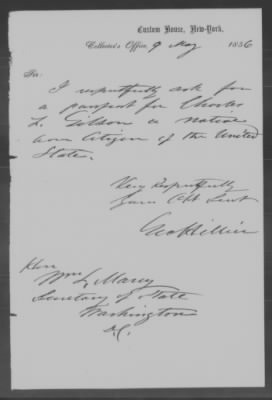 Custom House, New-York.
Collector's Office, 9 May 1856
Sir.
I respectfully ask for
a passport for Charles
L. Gibson a native
born Citizen of the United
States.
Very Respectfully
Your Obt Servt
Geo Hillier
Hon
Wm L. Marcy
Secretary of State
Washington
D.C.